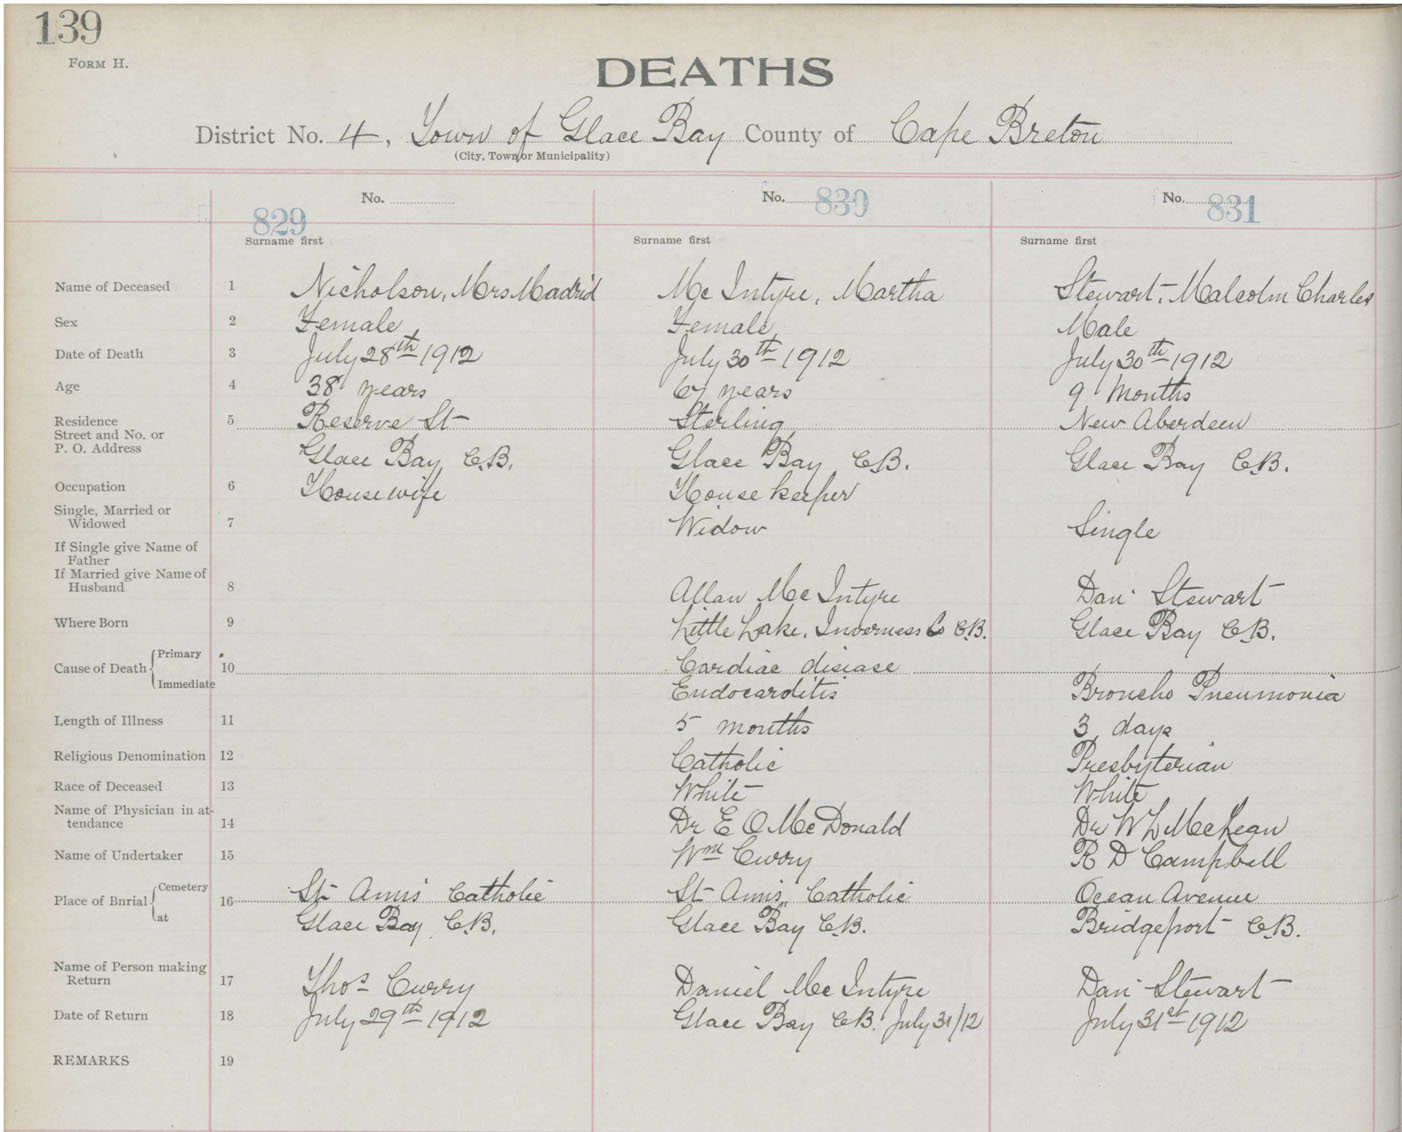 139
FORM H.
DEATHS
District No. 4, Town of Glace Bay County of Cape Breton
(City, Town, or Municipality)
No. No. No.
829 830 831
Surname first Surname first Surname first
Name of Deceased 1 Nicholson, Mrs Madrid Mc Intyre, Martha Stewart, Malcolm Charles
Sex 2 Female Female Male
Date of Death 3 July 28th 1912 July 30th 1912 July 30th 1912
Age 4 38 years 67 years 9 Months
Residence 5 Reserve St Sterling New Aberdeen
Street and No. or
P. O. Address Glace Bay C.B. Glace Bay C.B. Glace Bay C.B.
Occupation 6 Housewife House keeper
Single, Married or
Widowed 7 Widow Single
If Single give Name of
Father
If Married give Name of
Husband 8 Allan Mc Intyre Dan Stewart
Where Born 9 Little Lake, Inverness Co C.B. Glace Bay C.B.
Cause of Death Primary 10 Cardiac disease
Immediate Endocarditis Broncho Pneumonia
Length of Illness 11 5 months 3 days
Religious Denomination 12 Catholic Presbyterian
Race of Deceased 13 White White
Name of Physician in at-
tendance 14 Dr E O Mc Donald Dr W L McKean
Name of Undertaker 15 Wm Curry R D Campbell
Place of Burial Cemetery 16 St Anns Catholic St Anns Catholic Ocean Avenue
at Glace Bay C.B. Glace Bay C.B. Bridgeport C.B.
Name of Person making
Return 17 Thos Curry Daniel Mc Intyre Dan Stewart
Date of Return 18 July 29th 1912 Glace Bay C.B. July 31/12 July 31st 1912
REMARKS 19